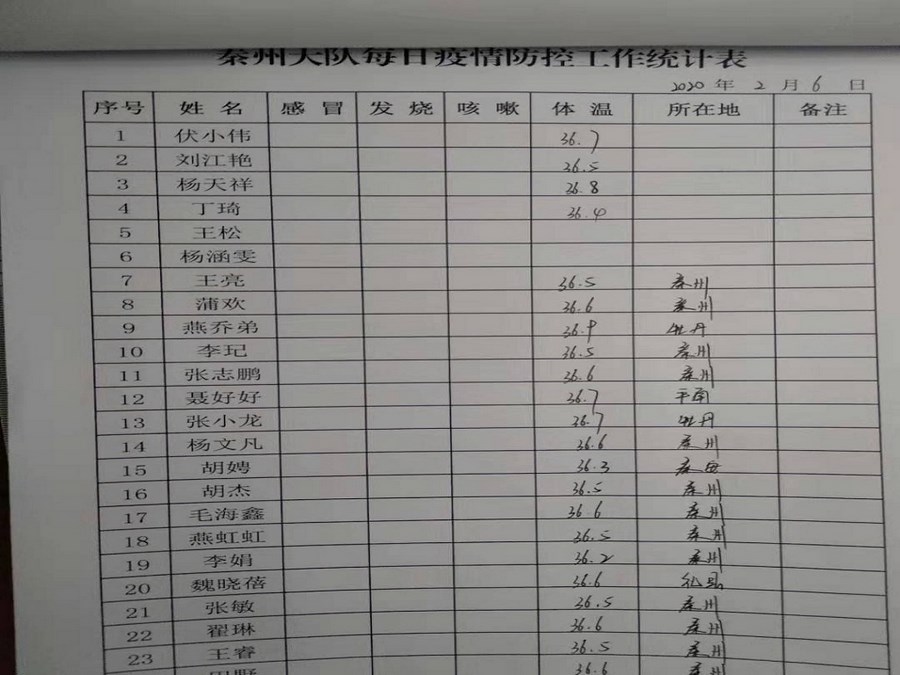 秦州大队每日疫情防控工作统计表
2020 年 2 月 6 日
序号 姓名 感冒 发烧 咳嗽 体温 所在地 备注
1 伏小伟 36.7
2 刘江艳 36.5
3 杨天祥 36.8
4 丁琦 36.4
5 王松
6 杨涵雯
7 王亮 36.5 秦州
8 蒲欢 36.6 秦州
9 燕乔弟 36.9 牡丹
10 李玘 36.5 秦州
11 张志鹏 36.6 秦州
12 聂好好 36.7 平南
13 张小龙 36.7 牡丹
14 杨文凡 36.6 秦州
15 胡娉 36.3
16 胡杰 36.5 秦州
17 毛海鑫 36.6 秦州
18 燕虹虹 36.5 秦州
19 李娟 36.2 秦州
20 魏晓蓓 36.6
21 张敏 36.5 秦州
22 翟琳 36.6 秦州
23 王睿 36.5 秦州
36.6